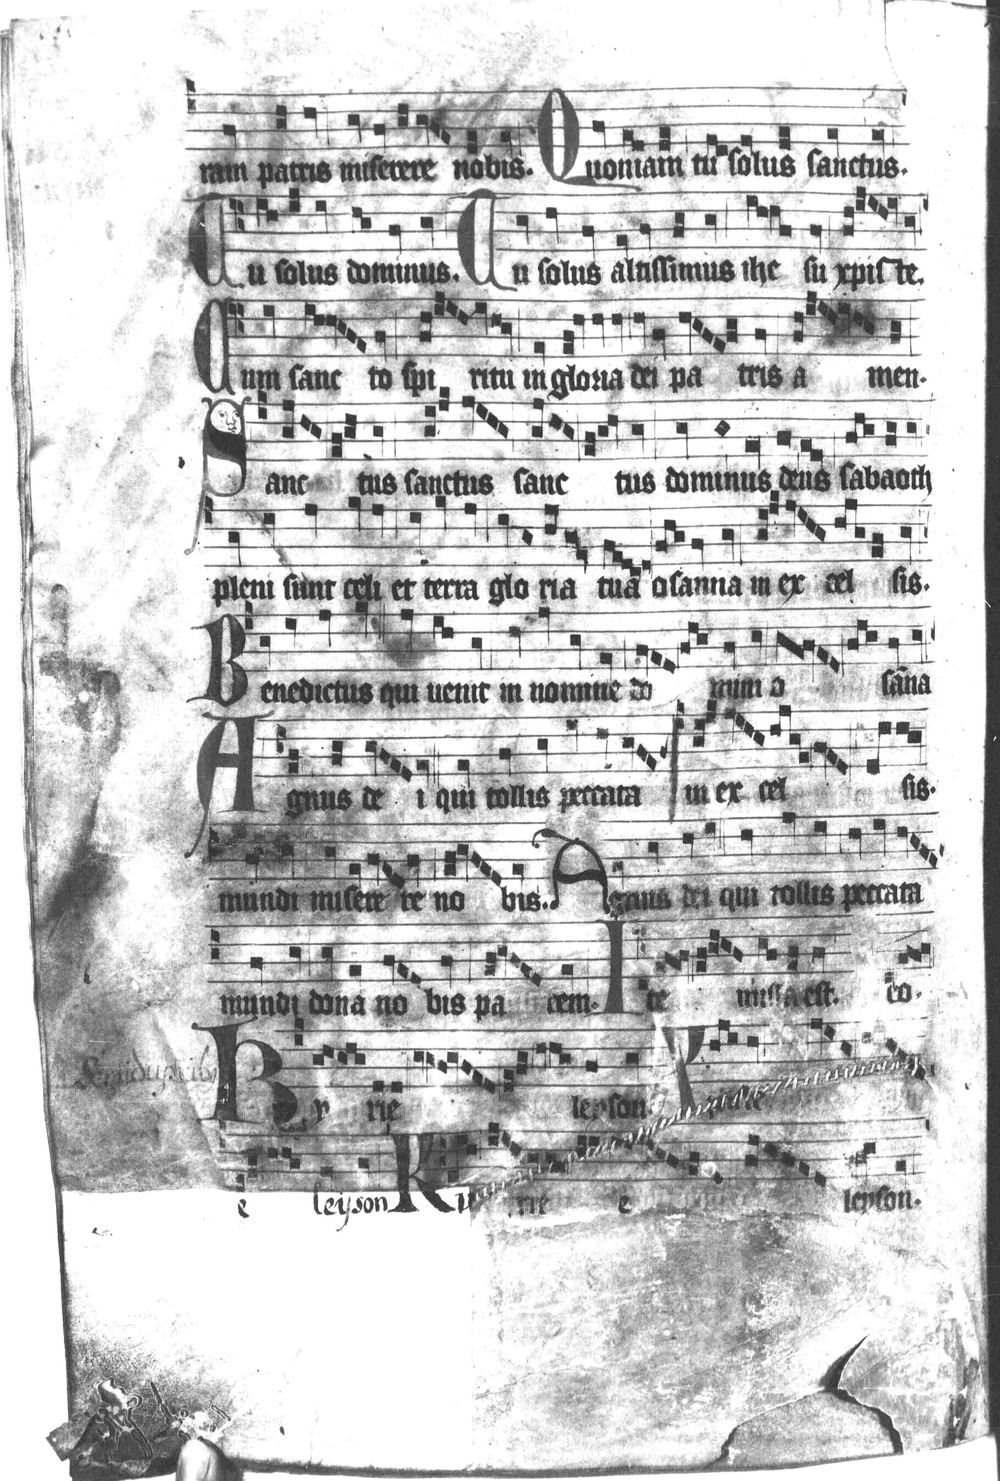 ram patris miserere nobis. Quoniam tu solus sanctus.
Tu solus dominus. Tu solus altissimus ihc su xpis te.
Cum sanc to spi ritu in gloria dei pa tris a men.
Sanc tus sanctus sanc tus dominus deus sabaoth
pleni sunt celi et terra glo ria tua osanna in ex cel sis.
Benedictus qui uenit in nomine do mini o sãna
Agnus de i qui tollis peccata in ex cel sis.
mundi misere re no bis. Agnus dei qui tollis peccata
mundi dona no bis pa cem. Ite missa est. eo.
Ky rie leyson
e leyson Ky rie e leyson.